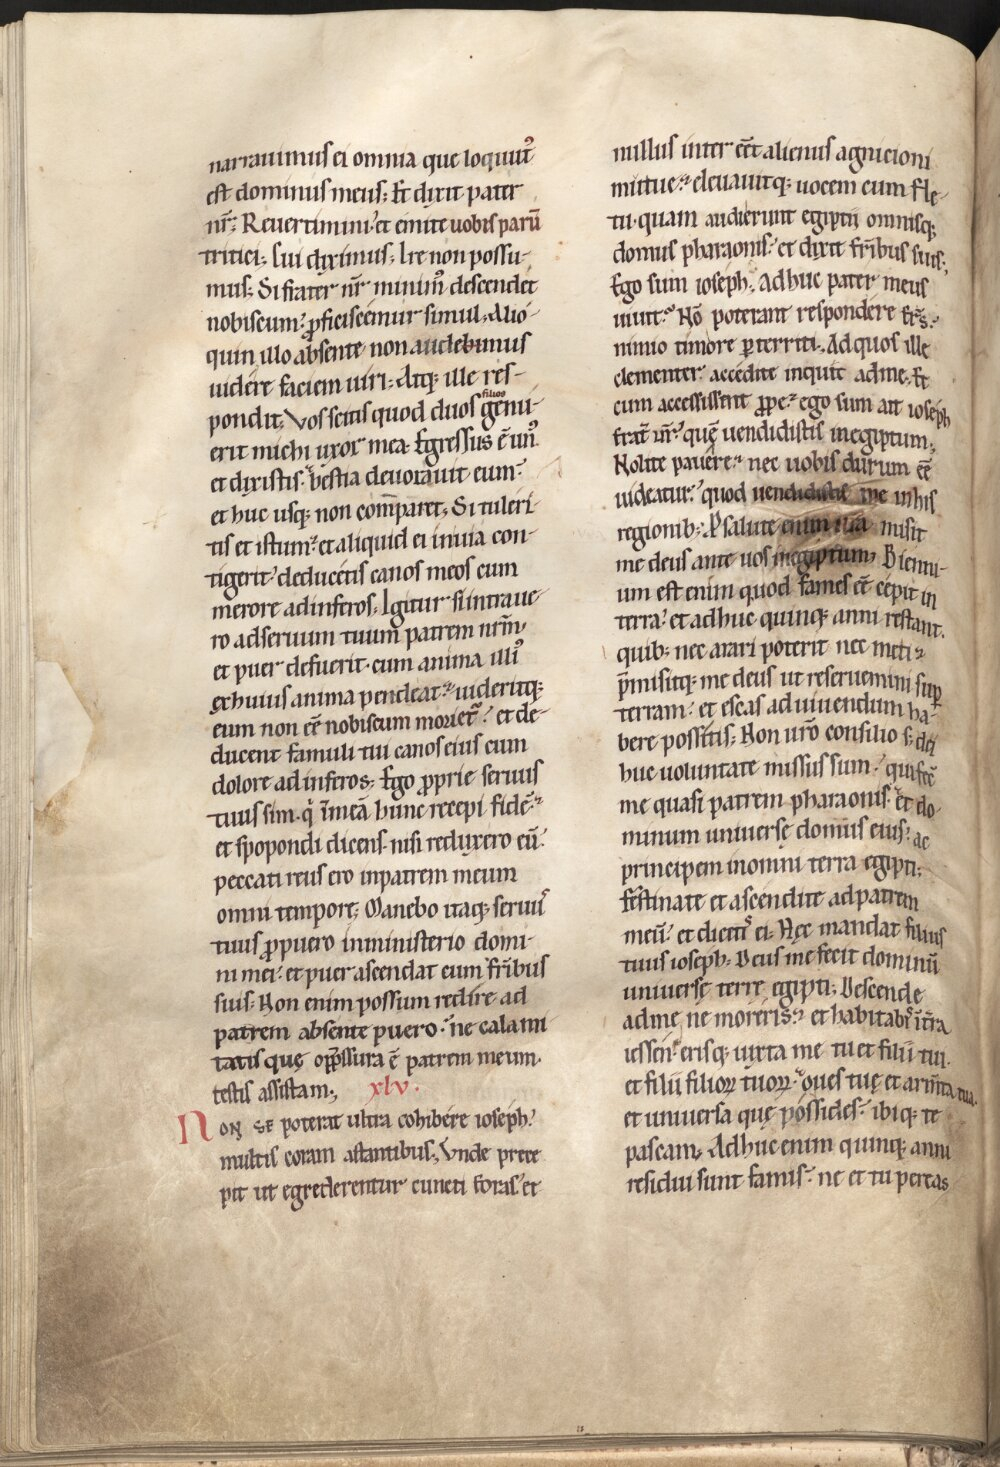 narrauimus ei omnia que locutꝰ
est dominus meus; Et dixit pater
nr̄; Reuertimini et emite uobis parū
tritici; Cui diximus; Ire non possu-
mus; Si frater nr̄ minimꝰ descendet
nobiscum; ꝓficiscemur simul; Alio-
quin illo absente non audebimus
uidere faciem uiri; Atq; ille res-
pondit; Vos scitis quod duos filios genu-
erit michi uxor mea; Egressus ē unꝰ
et dixistis; bestia deuorauit eum;
et huc usq; non comparet; Si tuleri-
tis et istum; et aliquid ei in uia con-
tigerit; deducetis canos meos cum
merore ad inferos; Igitur si intraue-
ro ad seruum tuum patrem nr̄m
et puer defuerit; cum anima illiꝰ
ex huius anima pendeat; uideritq;
eum non eē nobiscum morietᷣ; et de-
ducent famuli tui canos eius cum
dolore ad inferos; Ego proprie seruus
tuus sim. qͥ in meā hunc recepi fidē;
et spopondi dicens. nisi reduxero eū;
peccati reus ero in patrem meum
omni tempore; Manebo itaq; seruꝰ
tuus ꝓ puero in ministerio domi-
ni mei; et puer ascendat cum fr̄ibus
suis; Non enim possum redire ad
patrem absente puero; ne calami
tatis quę oppssura ē patrem meum
testis assistam; xlv.
NON SE poterat ultra cohibere ioseph;
multis coram astantibus; Vnde prece
pit ut egrederentur cuncti foras; et
nullus inter eēt alienus agnicioni
mutue; eleuauitq; uocem cum fle-
tu. quam audierunt egiptii omnisq;
domus pharaonis; et dixit fr̄ibus suis;
Ego sum ioseph; Adhuc pater meus
uiuit; Nō poterant respondere fr̄s;
nimio timore ꝑterriti; Ad quos ille
clementer; accedite inquit ad me; Et
cum accessissent ꝓpe; ego sum ait ioseph
frat̄ ur̄; quē uendidistis in egiptum;
Nolite pauere; nec uobis durum eē
uideatur; quod uendidistis me in his
regionib; P salute enim ura misit
me deus ante uos in egiptum; Bienni-
um est enim quod fames eē cepit in
terra; et adhuc quinq; anni restant.
quib; nec arari poterit nec meti;
p̄misitq; me deus ut reseruemini suꝑ
terram; et escas ad uiuendum ha-
bere possitis; Non uro consilio s; dei
huc uoluntate missus sum; qui fec̄
me quasi patrem pharaonis. et do-
minum uniuersę domus eius; ac
principem in omni terra egipti;
Festinate et ascendite ad patrem
meū; et dicetiꝰ ei; Hęc mandat filius
tuus ioseph; Deus me fecit dominū
uniuerse terre egipti; Descende
ad me ne moreris; et habitabiꝰ in t̄ra
iessen; erisq; iuxta me tu et filii tui.
et filii filioꝝ tuoꝝ. oues tuę et arm̄ta tua.
et uniuersa quę possides; ibiq; te
pascam; Adhuc enim quinq; anni
residui sunt famis; ne et tu pereas